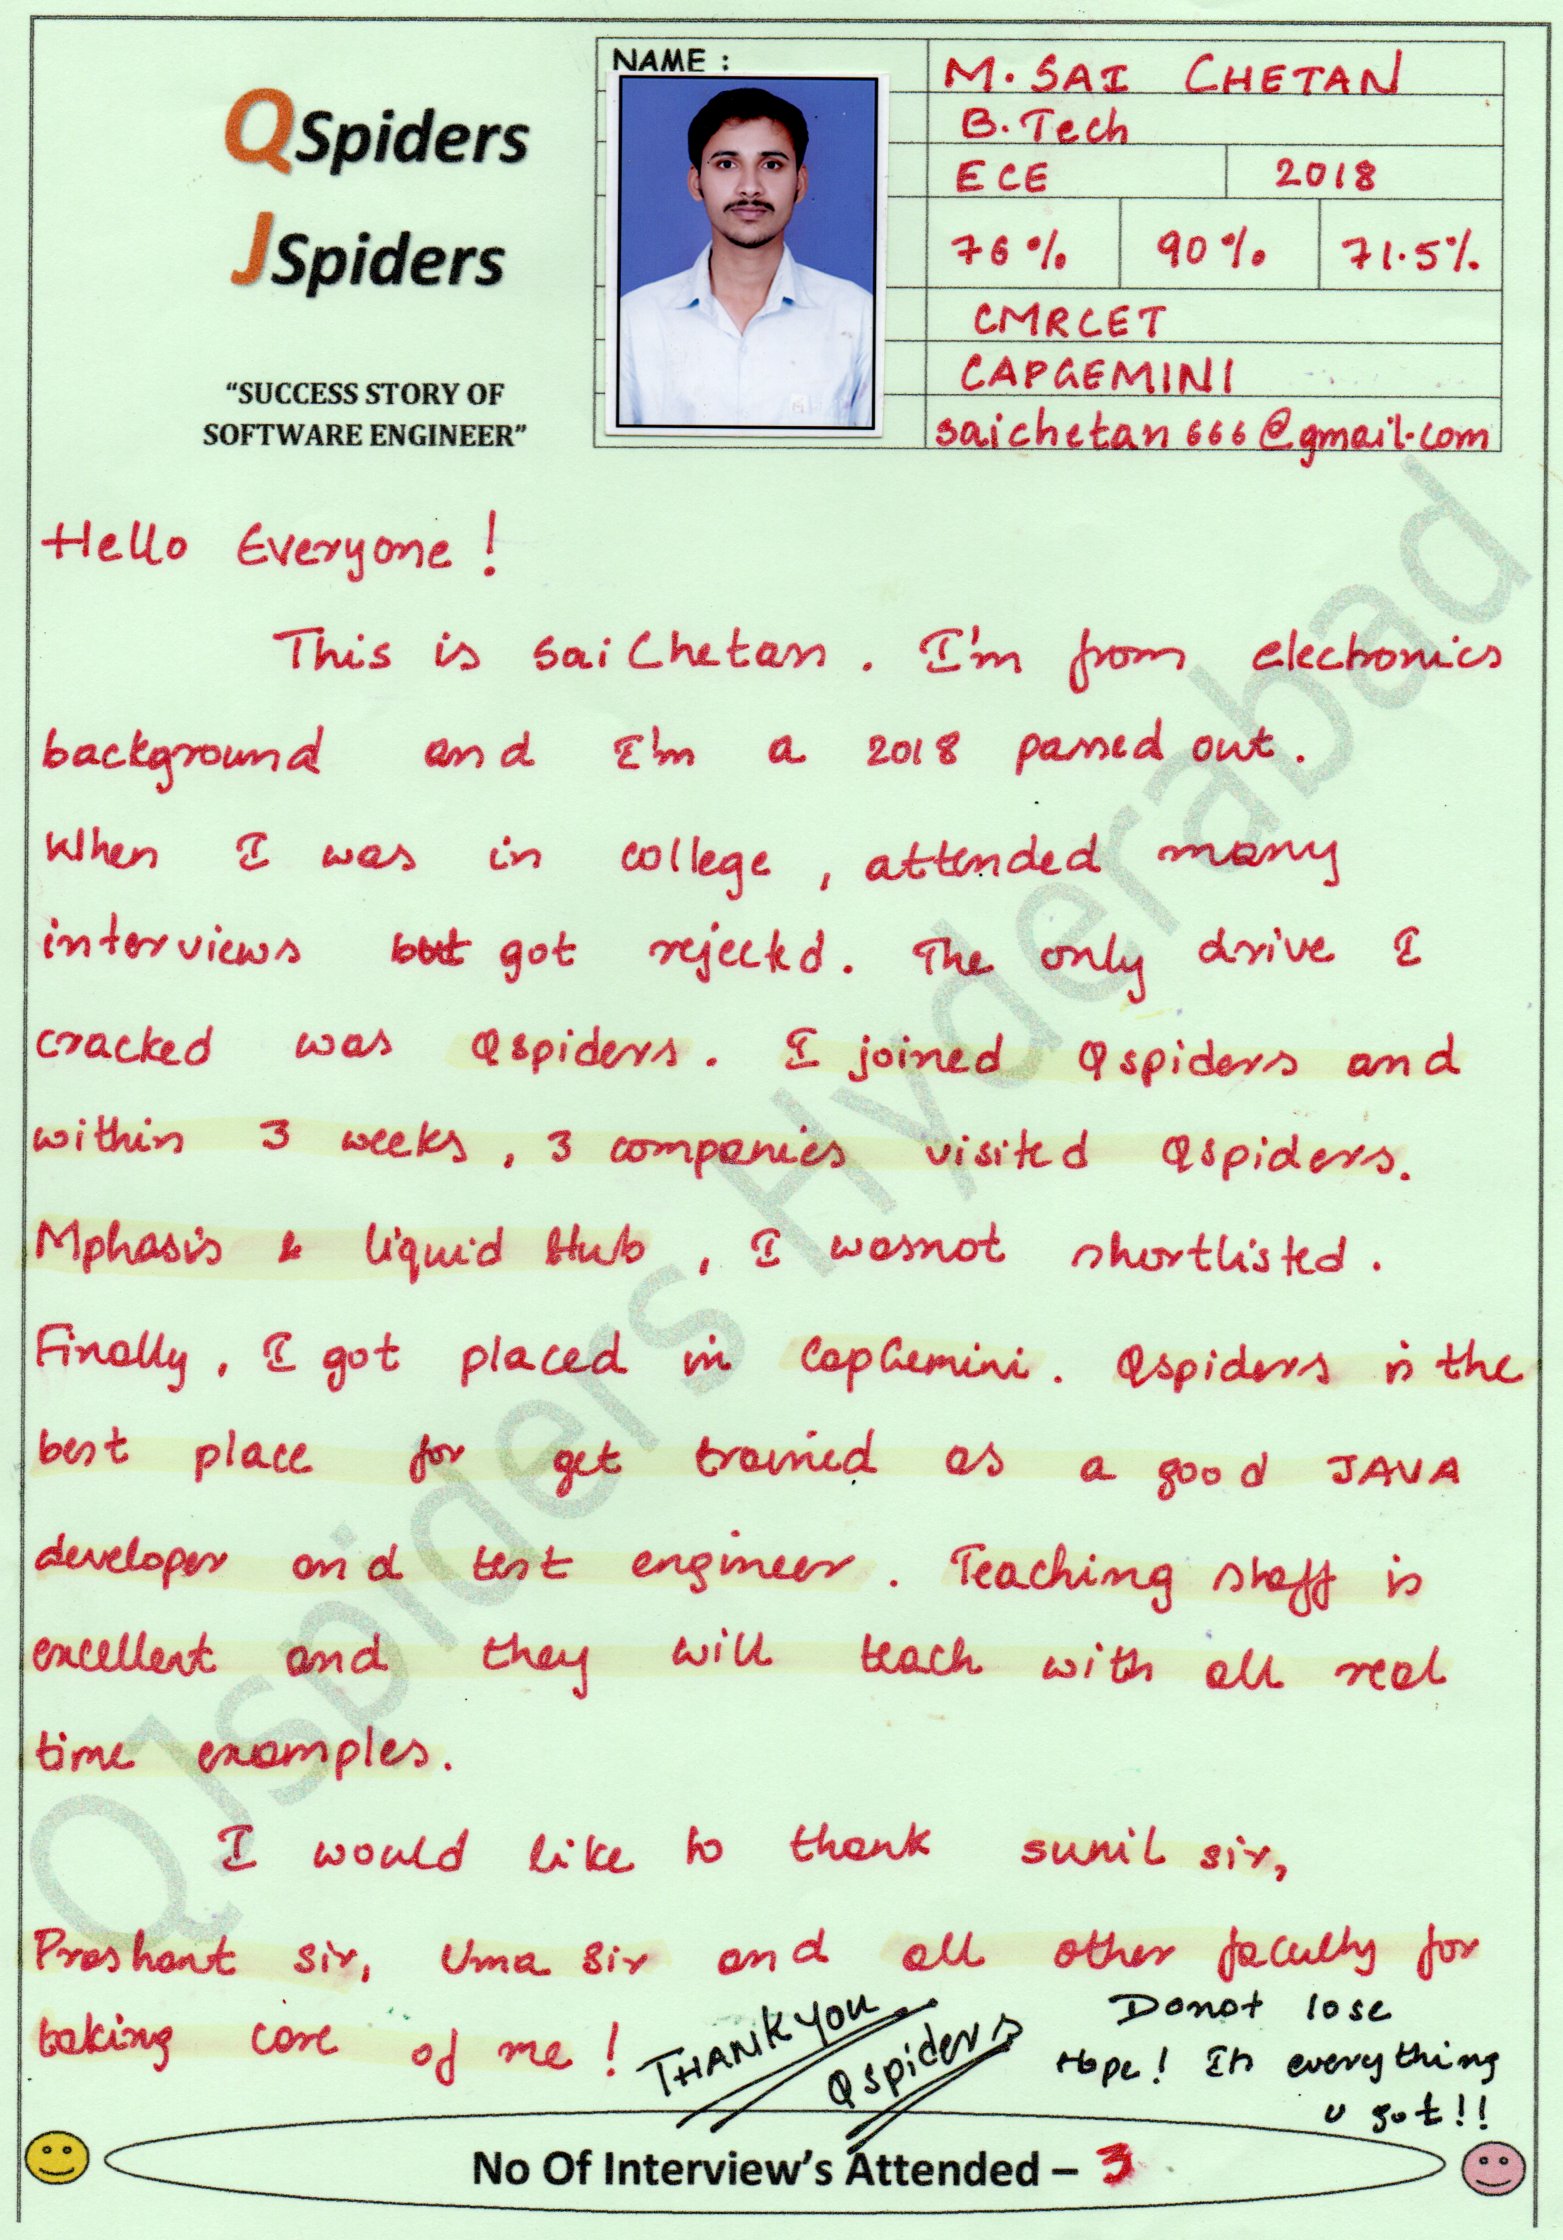 QSpiders
JSpiders
“SUCCESS STORY OF
SOFTWARE ENGINEER”
NAME :
M. SAI CHETAN
B. Tech
ECE 2018
76% 90% 71.5%
CMRCET
CAPGEMINI
saichetan666@gmail.com
Hello Everyone!
This is SaiChetan. I'm from electronics
background and I'm a 2018 passed out.
When I was in college, attended many
interviews but got rejected. The only drive I
cracked was Qspiders. I joined Qspiders and
within 3 weeks, 3 companies visited Qspiders.
Mphasis & liquid Hub, I wasnot shortlisted.
Finally, I got placed in CapGemini. Qspiders is the
best place for get trained as a good JAVA
developer and test engineer. Teaching staff is
excellent and they will teach with all real
time examples.
I would like to thank sunil sir,
Prashant sir, Uma Sir and all other faculty for
taking care of me!
THANK YOU
Qspiders
Donot lose
Hope! Its everything
u got!!
No Of Interview’s Attended – 3
QJspiders Hyderabad